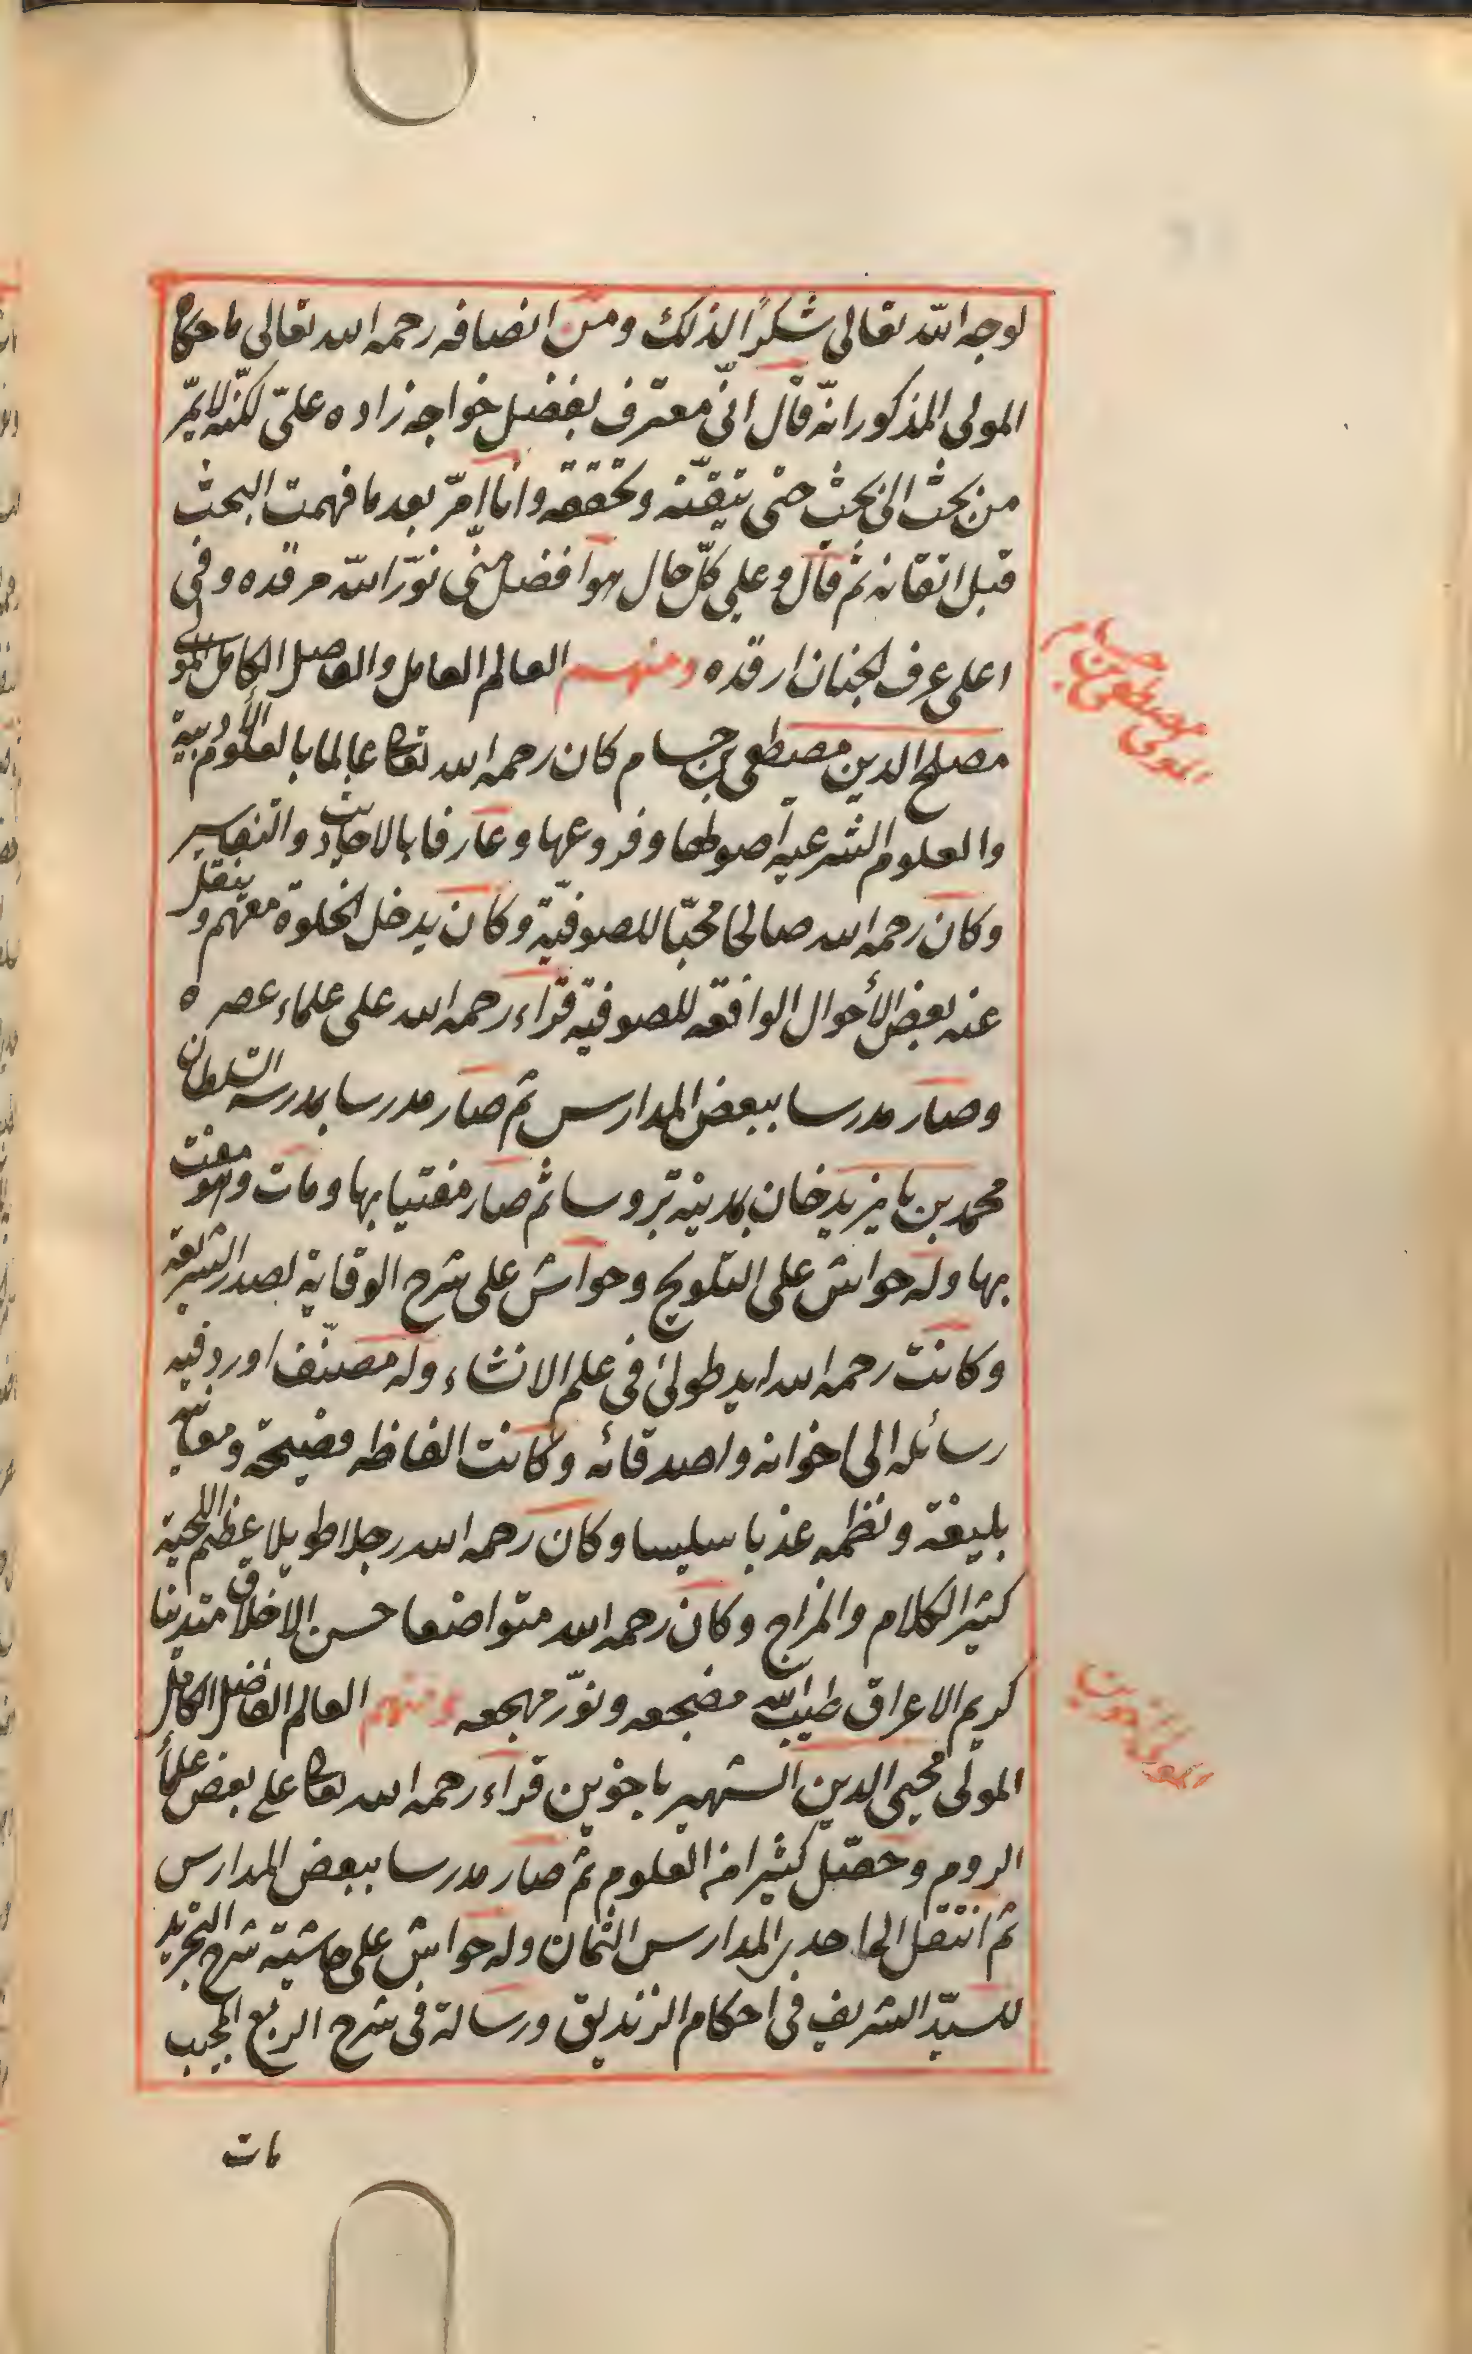 لوجه الله تعالى شكرًا لذلك ومن انصافه رحمه الله تعالى ما حكاه
المولى المذكور انه قال انى معترف بفضل خواجه زاده علىّ لكنّه لا يمرّ
من بحث الى بحث حتى يتيقّنه وتحققه وانا امرّ بعد ما فهمت البحث
قبل اتقانه ثم قال وعلى كلّ حال هو افضل منّى نوّر الله مرقده وفى
اعلى غرف الجنان ارقده ومنهم العالم العامل والفاضل الكامل المولى
مصلح الدين مصطفى بن حسام كان رحمه الله تعالى عالما بالعلوم الأدبية
والعلوم الشرعيه أصولها وفروعها وعارفا بالاحاديث والتفاسير
وكان رحمه الله صالحا محبّا للصوفيّة وكان يدخل الخلوة معهم وينقل
عنه بعض الأحوال الواقعه للصوفية قراء رحمه الله على علماء عصره
وصار مدرسا ببعض المدارس ثم صار مدرسا بمدرسه السلطان
محمد بن بايزيد خان بمدينة بروسا ثم صار مفتيا بها ومات وهو مفت
بها وله حواش على التلويح وحواش على شرح الوقاية لصدر الشريعة
وكانت رحمه الله يد طولىٰ فى علم الانشاء وله مصنّف اورد فيه
رسائله الى اخوانه واصدقائه وكانت الفاظه فصيحة ومعانيه
بليغة ونظمه عذبا سليسا وكان رحمه الله رجلا طويلا عظيم اللحية
كثير الكلام والمزاح وكان رحمه الله متواضعا حسن الاخلاق متدينا
كريم الاعراق طيب الله مضجعه ونوّر مهجعه ومنهم العالم الفاضل الكامل
المولى محيى الدين الشهير باخوين قراء رحمه الله تعالى على بعض علماء
الروم وحصّل كثيرا من العلوم ثم صار مدرسا ببعض المدارس
ثم انتقل الى احدى المدارس الثمان وله حواش على حاشية شرح التجريد
للسيّد الشريف فى احكام الزنديق ورسالة فى شرح الربع المجيب
مات
المولى مصطفى بن حسام
المولى اخوين